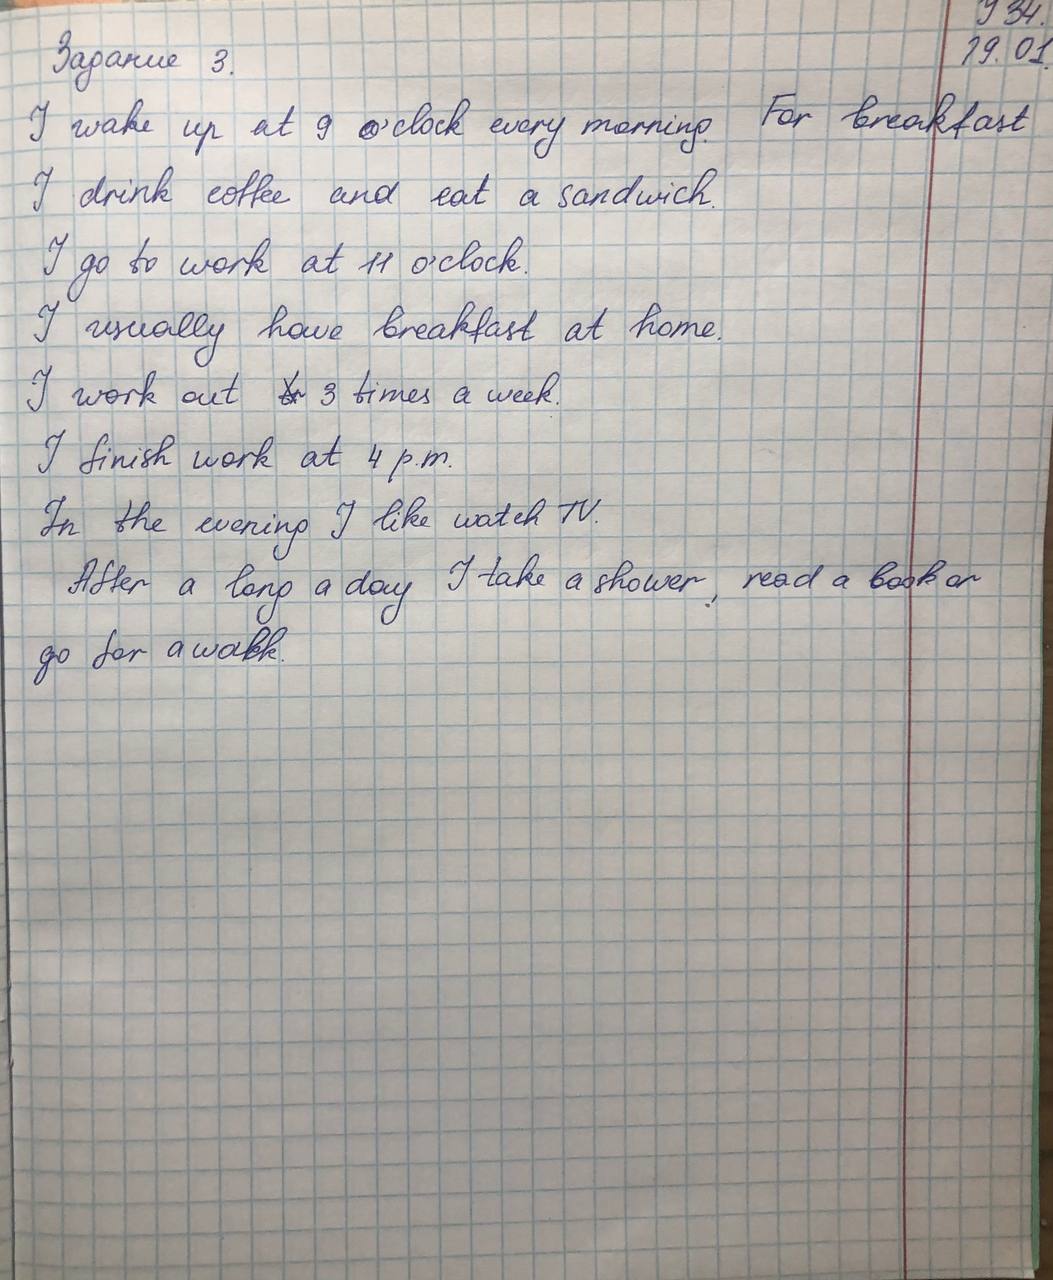 У 34.
19.01.
Задание 3.
I wake up at 9 o'clock every morning. For breakfast
I drink coffee and eat a sandwich.
I go to work at 11 o'clock.
I usually have breakfast at home.
I work out 3 times a week.
I finish work at 4 p.m.
In the evening I like watch TV.
After a long a day I take a shower, read a book or
go for a walk.